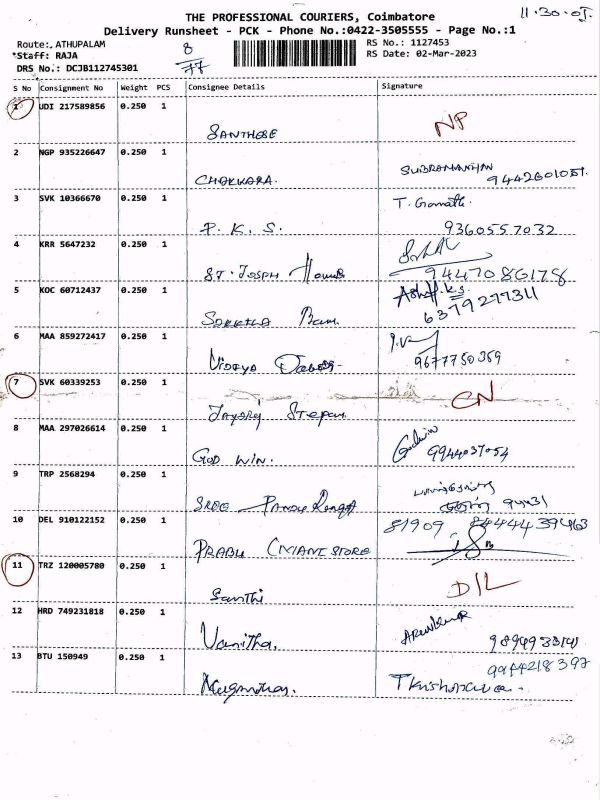 11-30-01.
THE PROFESSIONAL COURIERS, Coimbatore
Delivery Runsheet - PCK - Phone No.:0422-3505555 - Page No.:1
Route: ATHUPALAM 8 RS No.: 1127453
*Staff: RAJA 77 RS Date: 02-Mar-2023
DRS No.: DCJB112745301
S No Consignment No Weight PCS Consignee Details Signature
1 UDI 217589856 0.250 1
SANTHOSE NP
2 NGP 935226647 0.250 1
CHAKKARA. SUBRAMANIAN
9442601051.
3 SVK 10366670 0.250 1
P. K. S. T. Gomathi
9360557032
4 KRR 5647232 0.250 1
ST. JOSPH
9447086178
5 KOC 60712437 0.250 1
6379277311
6 MAA 859272417 0.250 1
9677750359
7 SVK 60339253 0.250 1
CN
8 MAA 297026614 0.250 1
GOD WIN. Godwin
9944037054
9 TRP 2568294 0.250 1
SREE
10 DEL 910122152 0.250 1
PRABU STORE
81909
11 TRZ 120005780 0.250 1
Santhi D/L
12 HRD 749231818 0.250 1
Vanitha. Arunkumar
13 BTU 150949 0.250 1
9944218397